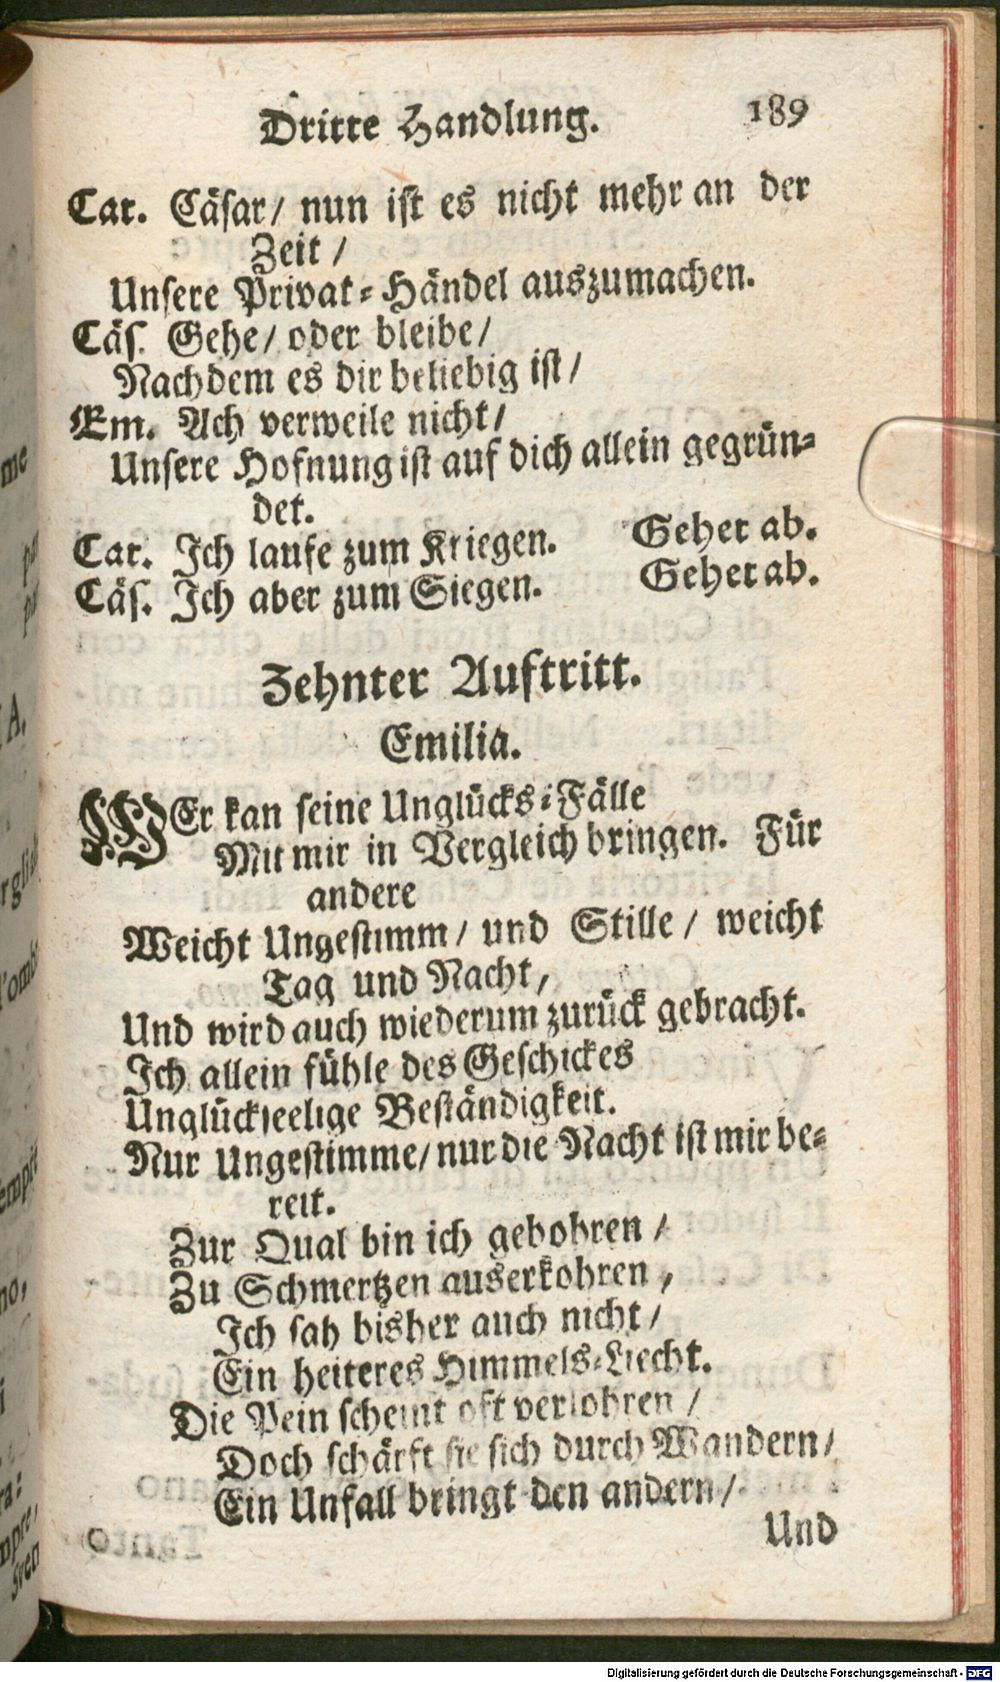 Dritte Handlung. 189
Car. Cäsar/ nun ist es nicht mehr an der
Zeit /
Unsere Privat-Händel auszumachen.
Cäs. Gehe/ oder bleibe/
Nachdem es dir beliebig ist/
Em. Ach verweile nicht/
Unsere Hofnung ist auf dich allein gegrün-
det.
Car. Ich laufe zum Kriegen. Gehet ab.
Cäs. Ich aber zum Siegen. Gehet ab.
Zehnter Auftritt.
Emilia.
WEr kan seine Unglücks-Fälle
Mit mir in Vergleich bringen. Für
andere
Weicht Ungestimm/ und Stille/ weicht
Tag und Nacht,
Und wird auch wiederum zurück gebracht.
Ich allein fühle des Geschickes
Unglückseelige Beständigkeit.
Nur Ungestimme/ nur die Nacht ist mir be-
reit.
Zur Qual bin ich gebohren /
Zu Schmertzen auserkohren,
Ich sah bisher auch nicht/
Ein heiteres Himmels-Liecht.
Die Pein scheint oft verlohren /
Doch schärft sie sich durch Wandern/
Ein Unfall bringt den andern/
Und
me
A.
no,
Digitalisierung gefördert durch die Deutsche Forschungsgemeinschaft - DFG